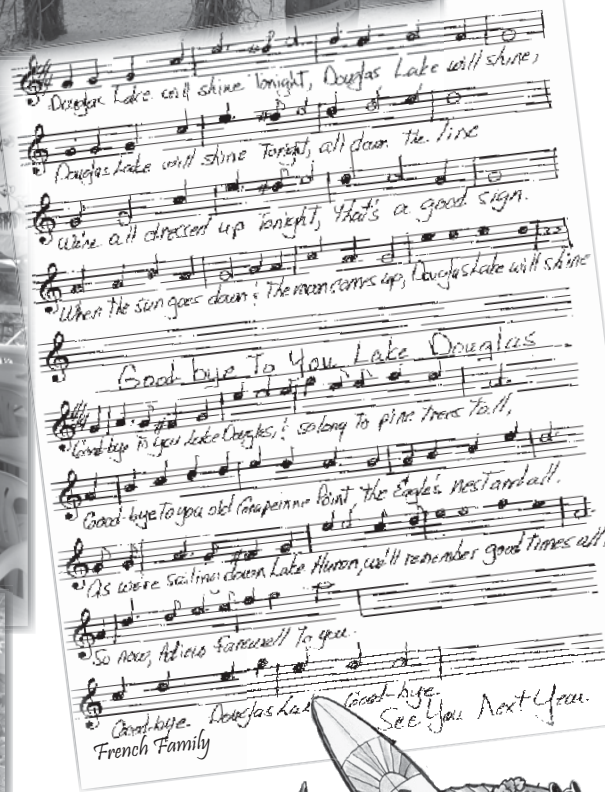 Douglas Lake will shine Tonight, Douglas Lake will shine,
Douglas Lake will shine Tonight, all down the line
We're all dressed up Tonight, That's a good sign.
When the sun goes down & The moon comes up, Douglas Lake will shine
Good bye To You Lake Douglas
Good-bye To you Lake Douglas, & so long to pine trees tall,
Good-bye To you old Grapevine Point the Eagle's nest and all.
As we're sailing down Lake Huron, we'll remember good times all
So now, Adieu farewell To you.
Good-bye. Douglas Lake Good-bye.
See You Next Year.
French Family